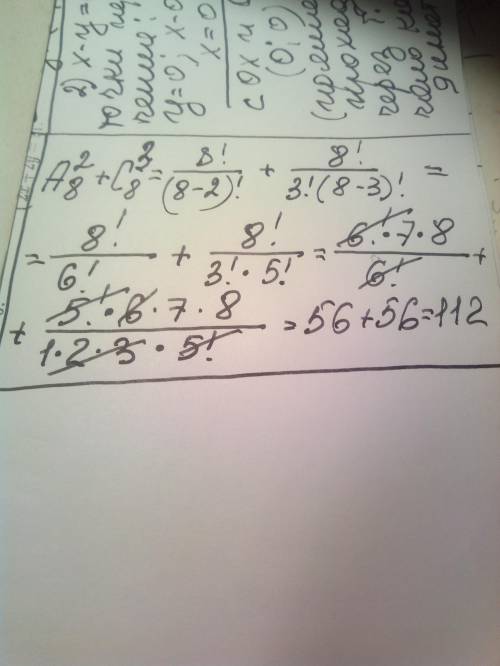 2) x-y=
точки пе
чения:
y=0; x-0
x=0
с Ох и
(0; 0)
через
A₈² + C₈³ = 8!/(8-2)! + 8!/3!(8-3)! =
= 8!/6! + 8!/3!·5! = 6!·7·8/6! +
+ 5!·6·7·8/1·2·3·5! = 56+56=112